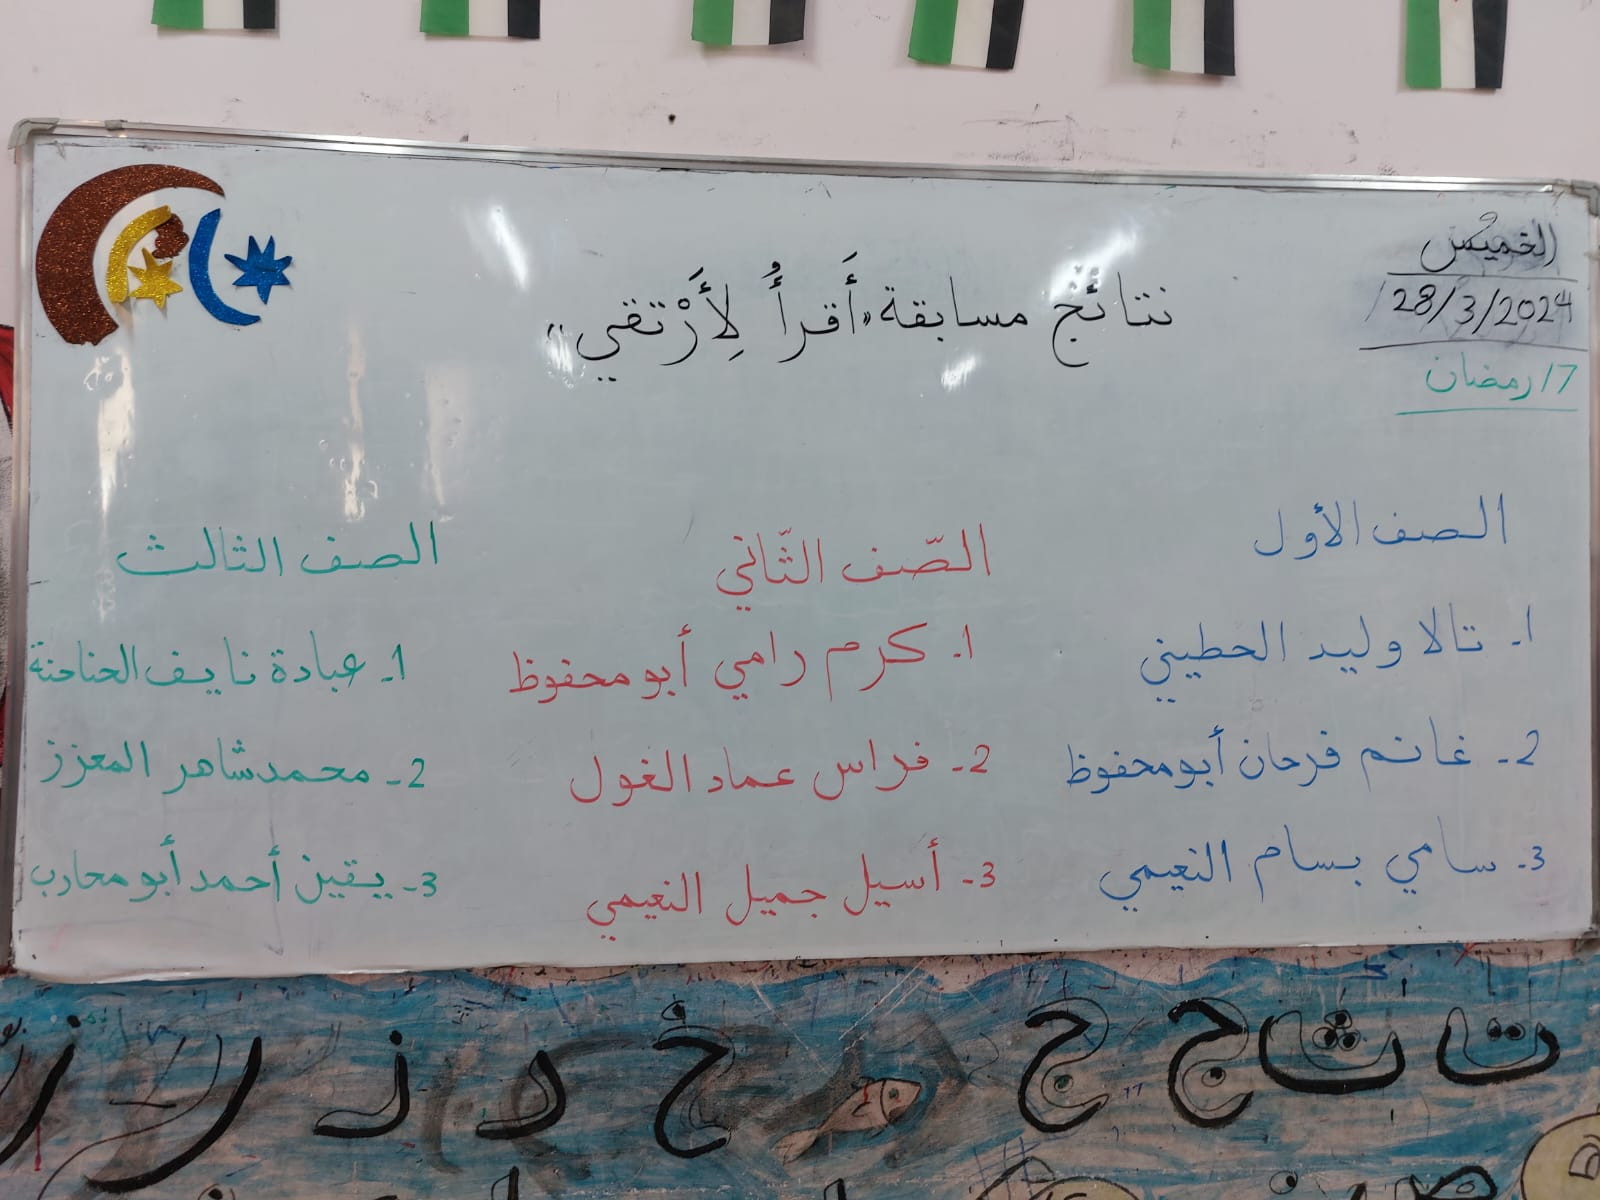 الخميس
28/3/2024
17 رمضان
نتائج مسابقة «أَقرأُ لِأَرْتقي»
الصف الأول
1ـ تالا وليد الحطيني
2ـ غانم فرحان أبو محفوظ
3ـ سامي بسام النعيمي
الصّف الثّاني
1ـ كرم رامي أبو محفوظ
2ـ فراس عماد الغول
3ـ أسيل جميل النعيمي
الصف الثالث
1ـ عبادة نايف الحناحنة
2ـ محمد شاهر المعزز
3ـ يقين أحمد أبو محارب
ت ث ج ح خ د ذ ر ز